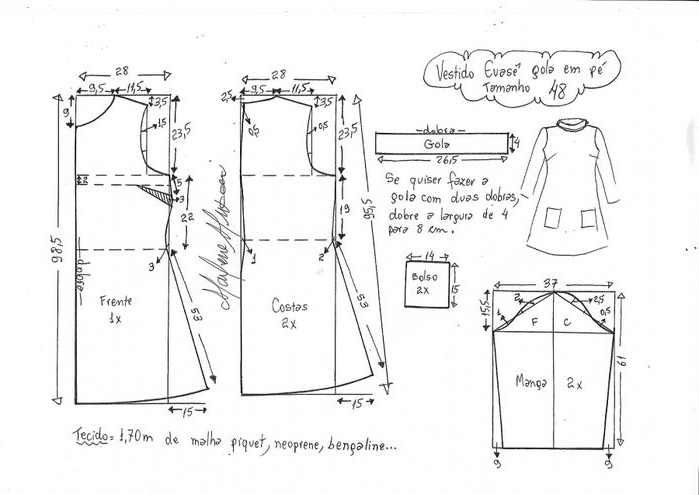 Vestido Evasê gola em pé
Tamanho 48
28
9,5 11,5
9
3,5
1,5
23,5
2
5
3
22
3
98,5
dobra
Frente
1x
53
15
28
9,5 11,5
2,5
0,5
3,5
0,5
23,5
19
1
2
95,5
Costas
2x
53
15
Marlene Mukai
dobra
Gola
4
26,5
Se quiser fazer a
gola com duas dobras,
dobre a largura de 4
para 8 cm.
14
Bolso
2x
15
37
15,5
1
2
2,5
0,5
F C
Manga 2x
61
9
9
Tecido = 1,70m de malha piquet, neoprene, bengaline...